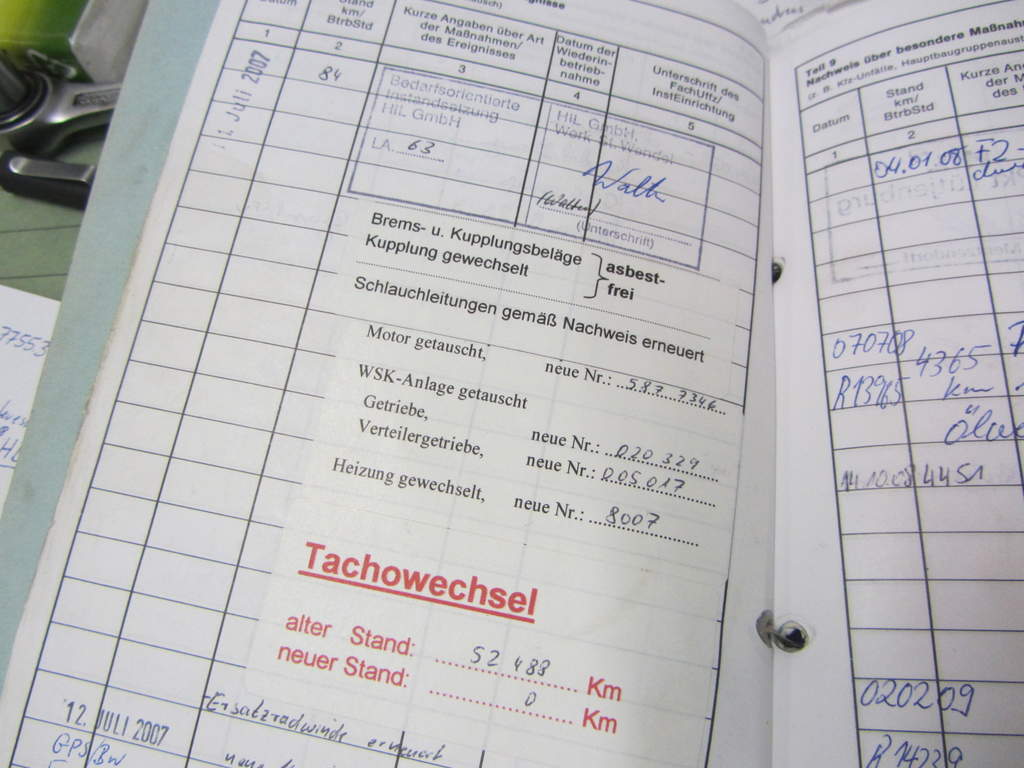 Datum
Stand
km/
BtrbStd
Kurze Angaben über Art
der Maßnahmen/
des Ereignisses
Datum der
Wiederin-
betrieb-
nahme
Unterschrift des
FachUffz/
InstEinrichtung
1
2
3
4
5
11. Juli 2007
84
Bedarfsorientierte
Instandsetzung
HIL GmbH
LA. 63
HIL GmbH,
Werk St. Wendel
(Unterschrift)
Brems- u. Kupplungsbeläge
Kupplung gewechselt
asbest-
frei
Schlauchleitungen gemäß Nachweis erneuert
Motor getauscht, neue Nr.:
WSK-Anlage getauscht
Getriebe, neue Nr.: 020 329
Verteilergetriebe, neue Nr.: 205 017
Heizung gewechselt, neue Nr.: 8007
Tachowechsel
alter Stand: 52 488 Km
neuer Stand: 0 Km
12. JULI 2007
Ersatzradwinde erneuert
GPS/Bw
Teil 9
Nachweis über besondere
(z. B. Kfz-Unfälle,
Datum
Stand
km/
BtrbStd
1
2
04.01.08 F2-
070708
4365
R13965
km
14.10.08 4451
020209
R 14239
77553